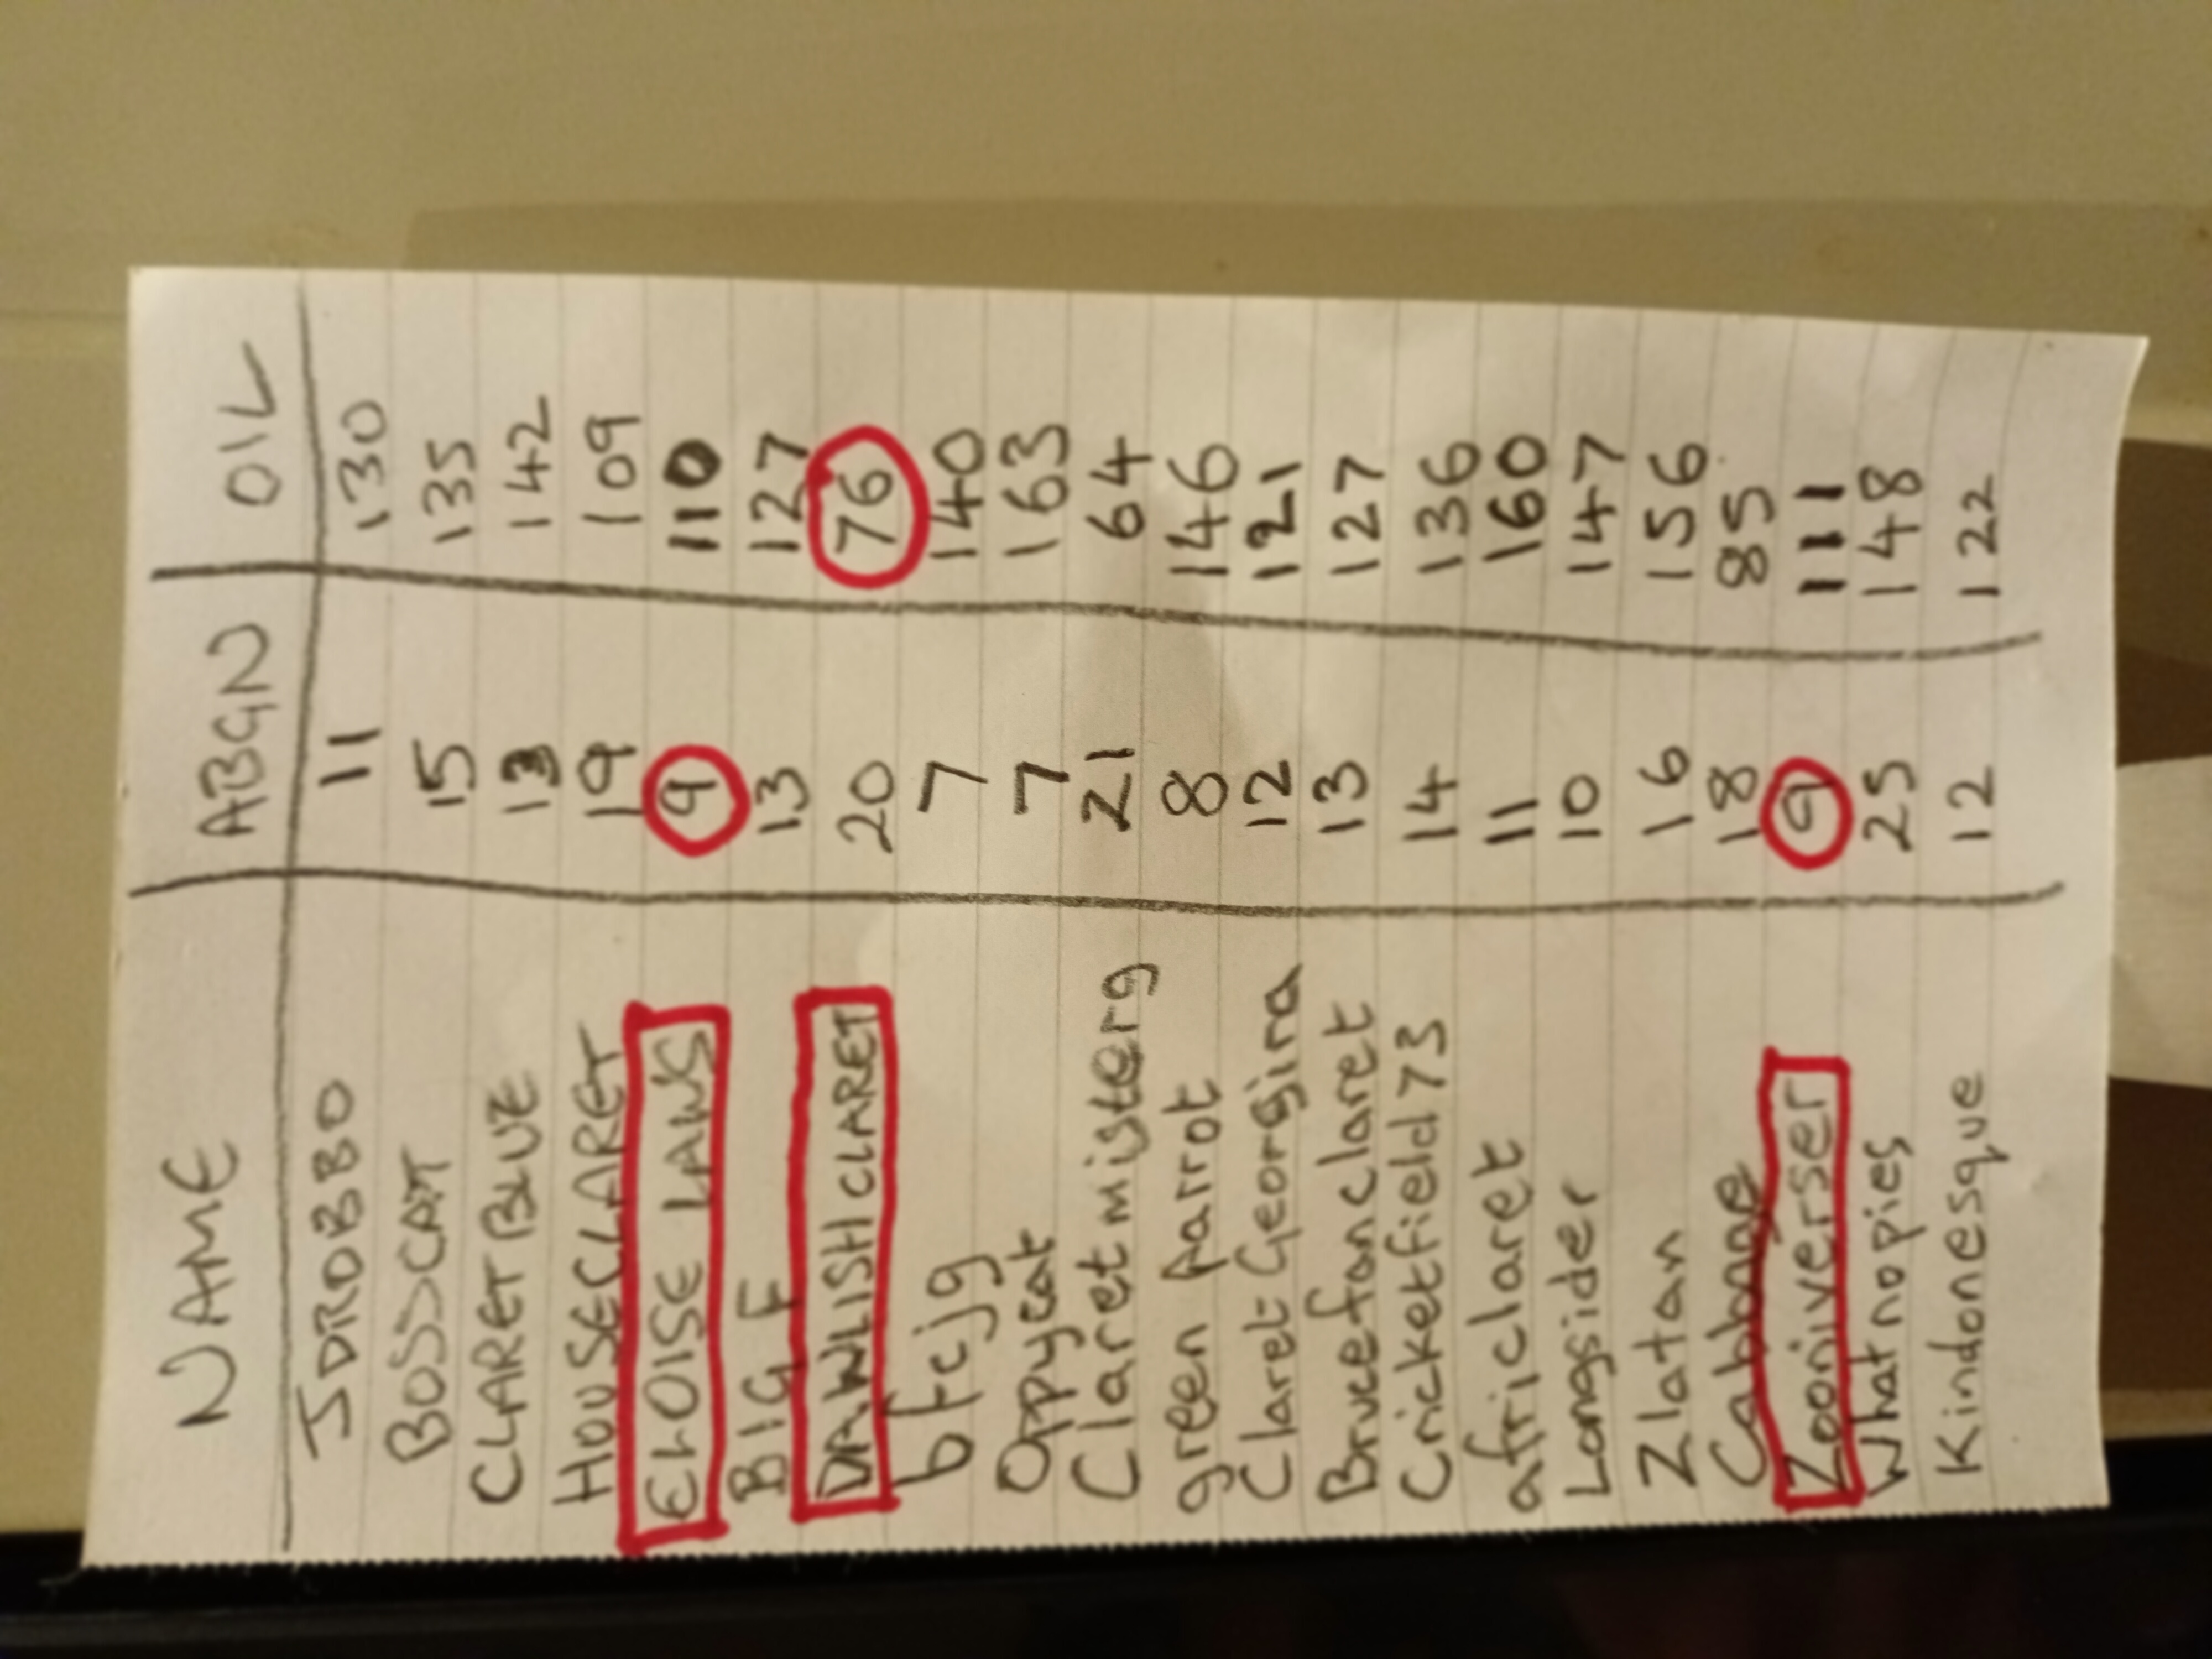 NAME ABGN OIL
JDROBBO 11 130
BOSSCAT 15 135
CLARETBLUE 13 142
HOUSECLARET 19 109
ELOISE LAWS 9 110
BIG F 13 127
DAWLISHCLARET 20 76
bfcjg 7 140
Oppycat 7 163
Claretmisterg 21 64
green parrot 8 146
Claret Georgina 12 121
Brucefanclaret 13 127
Cricketfield 73 14 136
africlaret 11 160
Longsider 10 147
Zlatan 16 156
Cabbage 18 85
Zooniverser 9 111
Whatnopies 25 148
Kindonesque 12 122